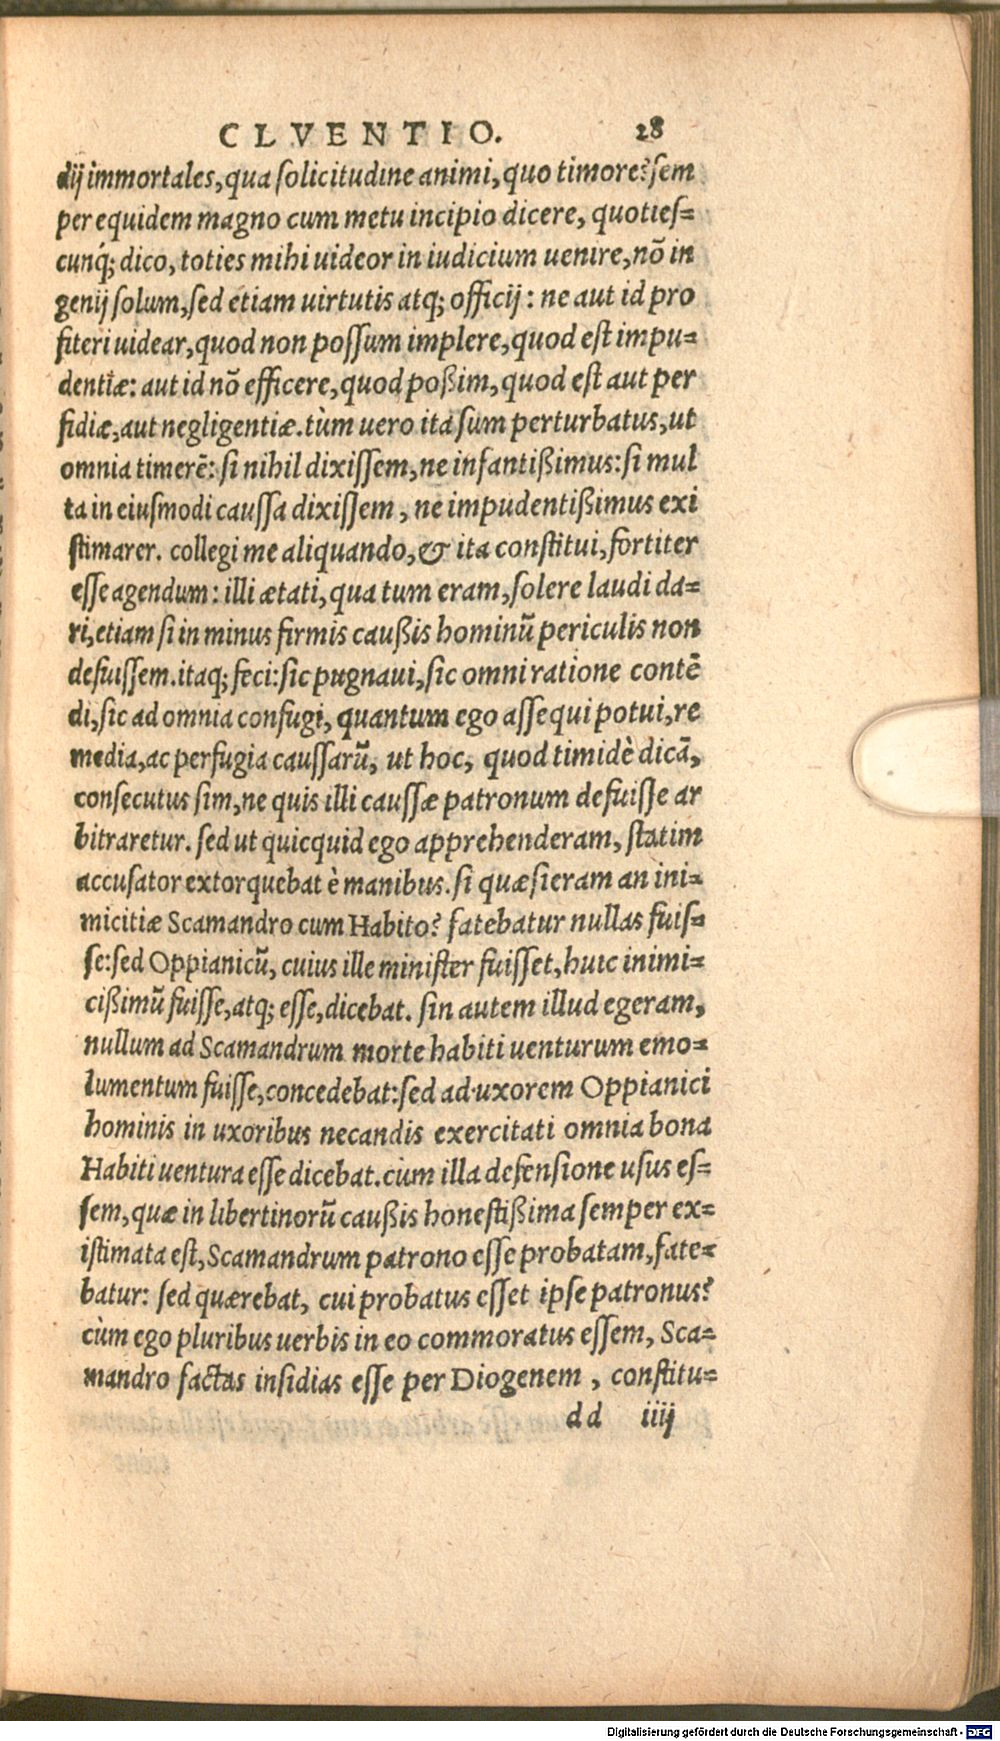 CLVENTIO. 28
dij immortales, qua solicitudine animi, quo timore? sem
per equidem magno cum metu incipio dicere, quoties=
cunq́; dico, toties mihi uideor in iudicium uenire, nō in
genij solum, sed etiam uirtutis atq; officij: ne aut id pro
fiteri uidear, quod non possum implere, quod est impu=
dentiæ: aut id nō efficere, quod poßim, quod est aut per
fidiæ, aut negligentiæ. tùm uero ita sum perturbatus, ut
omnia timerē: si nihil dixissem, ne infantißimus: si mul
ta in eiusmodi caussa dixissem, ne impudentißimus exi
stimarer. collegi me aliquando, & ita constitui, fortiter
esse agendum: illi ætati, qua tum eram, solere laudi da=
ri, etiam si in minus firmis caußis hominū periculis non
defuissem. itaq; feci: sic pugnaui, sic omni ratione contē
di, sic ad omnia confugi, quantum ego assequi potui, re
media, ac perfugia caussarū, ut hoc, quod timidè dicā,
consecutus sim, ne quis illi caussæ patronum defuisse ar
bitraretur. sed ut quicquid ego apprehenderam, statim
accusator extorquebat è manibus. si quæsieram an ini=
micitiæ Scamandro cum Habito? fatebatur nullas fuis=
se: sed Oppianicū, cuius ille minister fuisset, huic inimi=
cißimū fuisse, atq; esse, dicebat. sin autem illud egeram,
nullum ad Scamandrum morte habiti uenturum emo=
lumentum fuisse, concedebat: sed ad uxorem Oppianici
hominis in uxoribus necandis exercitati omnia bona
Habiti uentura esse dicebat. cùm illa defensione usus es=
sem, quæ in libertinorū caußis honestißima semper ex=
istimata est, Scamandrum patrono esse probatam, fate=
batur: sed quærebat, cui probatus esset ipse patronus?
cùm ego pluribus uerbis in eo commoratus essem, Sca=
mandro factas insidias esse per Diogenem, constitu=
dd iiij
Digitalisierung gefördert durch die Deutsche Forschungsgemeinschaft - DFG